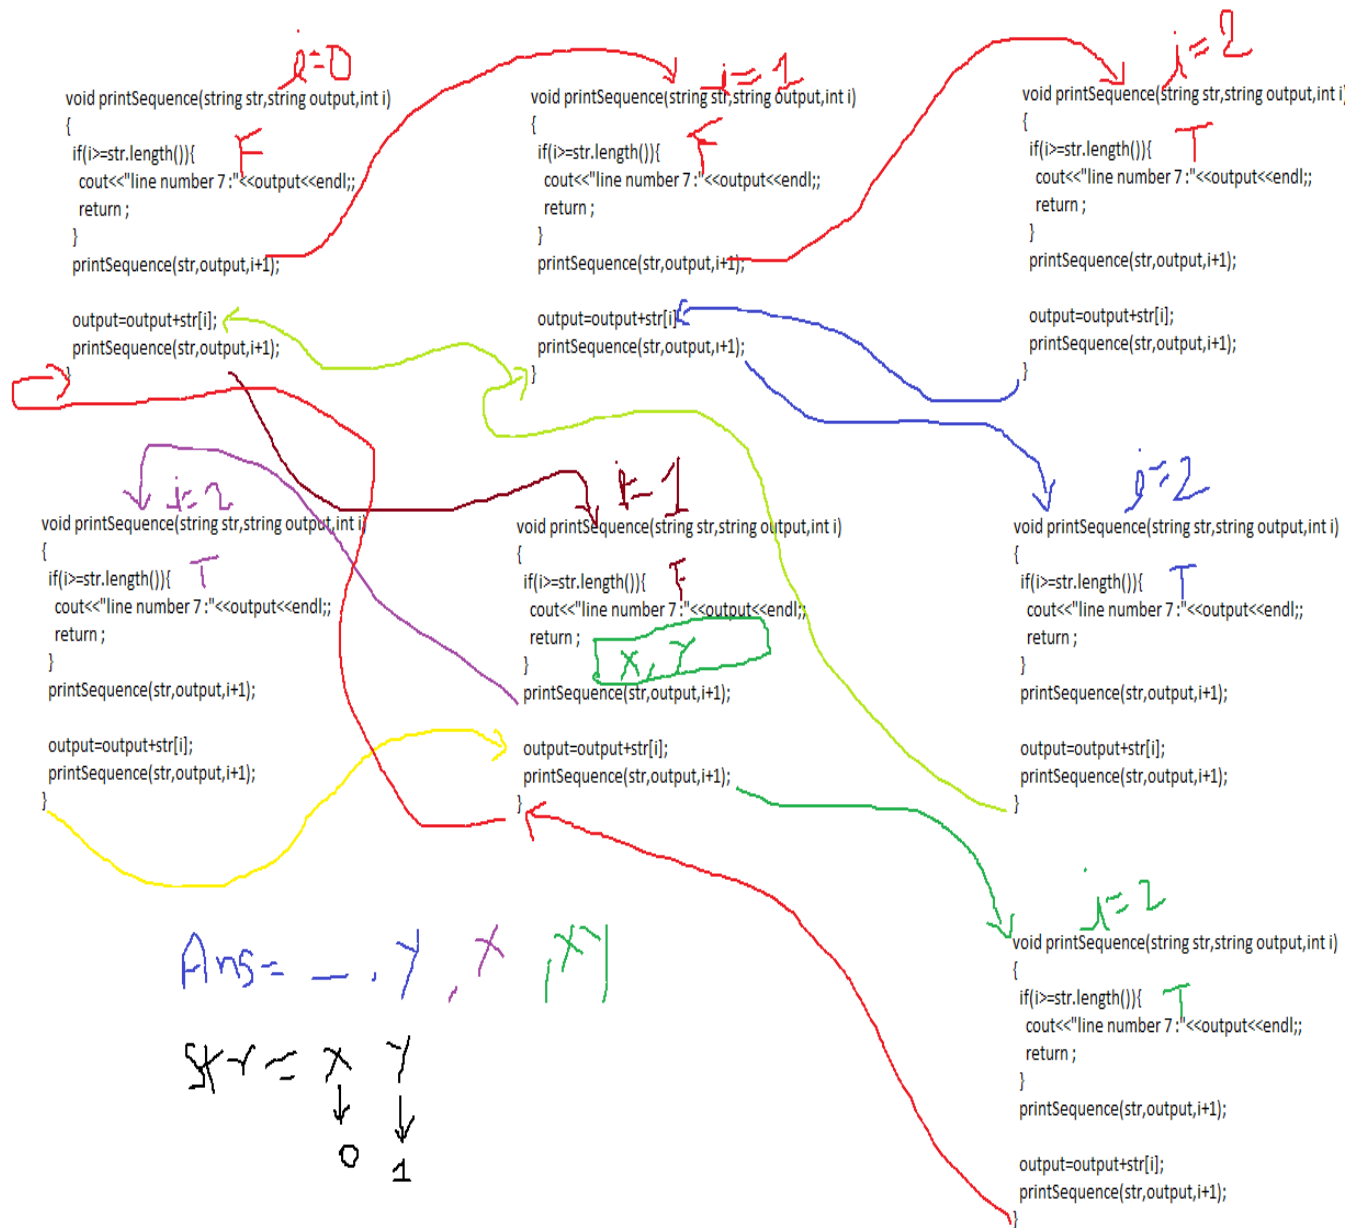 i=0
void printSequence(string str,string output,int i)
{
if(i>=str.length()){ F
cout<<"line number 7 :"<<output<<endl;;
return ;
}
printSequence(str,output,i+1);
output=output+str[i];
printSequence(str,output,i+1);
}
i=1
void printSequence(string str,string output,int i)
{
if(i>=str.length()){ F
cout<<"line number 7 :"<<output<<endl;;
return ;
}
printSequence(str,output,i+1);
output=output+str[i]
printSequence(str,output,i+1);
}
i=2
void printSequence(string str,string output,int i)
{
if(i>=str.length()){ T
cout<<"line number 7 :"<<output<<endl;;
return ;
}
printSequence(str,output,i+1);
output=output+str[i];
printSequence(str,output,i+1);
}
i=2
void printSequence(string str,string output,int i)
{
if(i>=str.length()){ T
cout<<"line number 7 :"<<output<<endl;;
return ;
}
printSequence(str,output,i+1);
output=output+str[i];
printSequence(str,output,i+1);
}
i=1
void printSequence(string str,string output,int i)
{
if(i>=str.length()){ F
cout<<"line number 7 :"<<output<<endl;;
return ;
} X, Y
printSequence(str,output,i+1);
output=output+str[i];
printSequence(str,output,i+1);
}
i=2
void printSequence(string str,string output,int i)
{
if(i>=str.length()){ T
cout<<"line number 7 :"<<output<<endl;;
return ;
}
printSequence(str,output,i+1);
output=output+str[i];
printSequence(str,output,i+1);
}
i=2
void printSequence(string str,string output,int i)
{
if(i>=str.length()){ T
cout<<"line number 7 :"<<output<<endl;;
return ;
}
printSequence(str,output,i+1);
output=output+str[i];
printSequence(str,output,i+1);
}
Ans= _ , Y , X , XY
Str = X Y
0 1